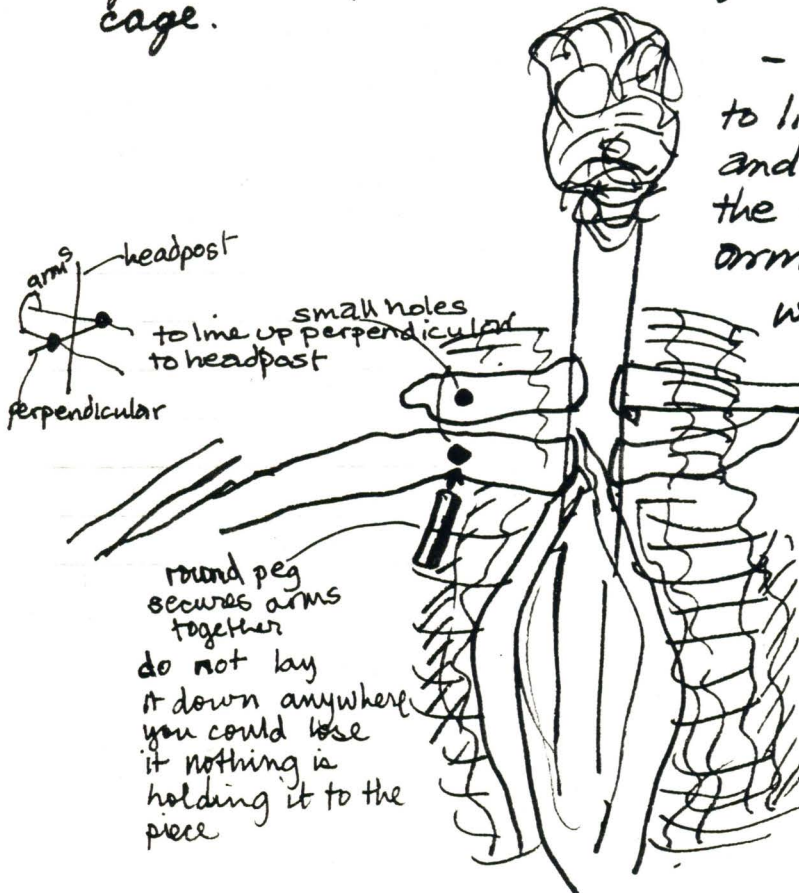 cage.
-
to li
and
the
arm
w
arms
headpost
perpendicular
small holes
to line up perpendicular
to headpost
round peg
secures arms
together
do not lay
it down anywhere
you could lose
it nothing is
holding it to the
piece